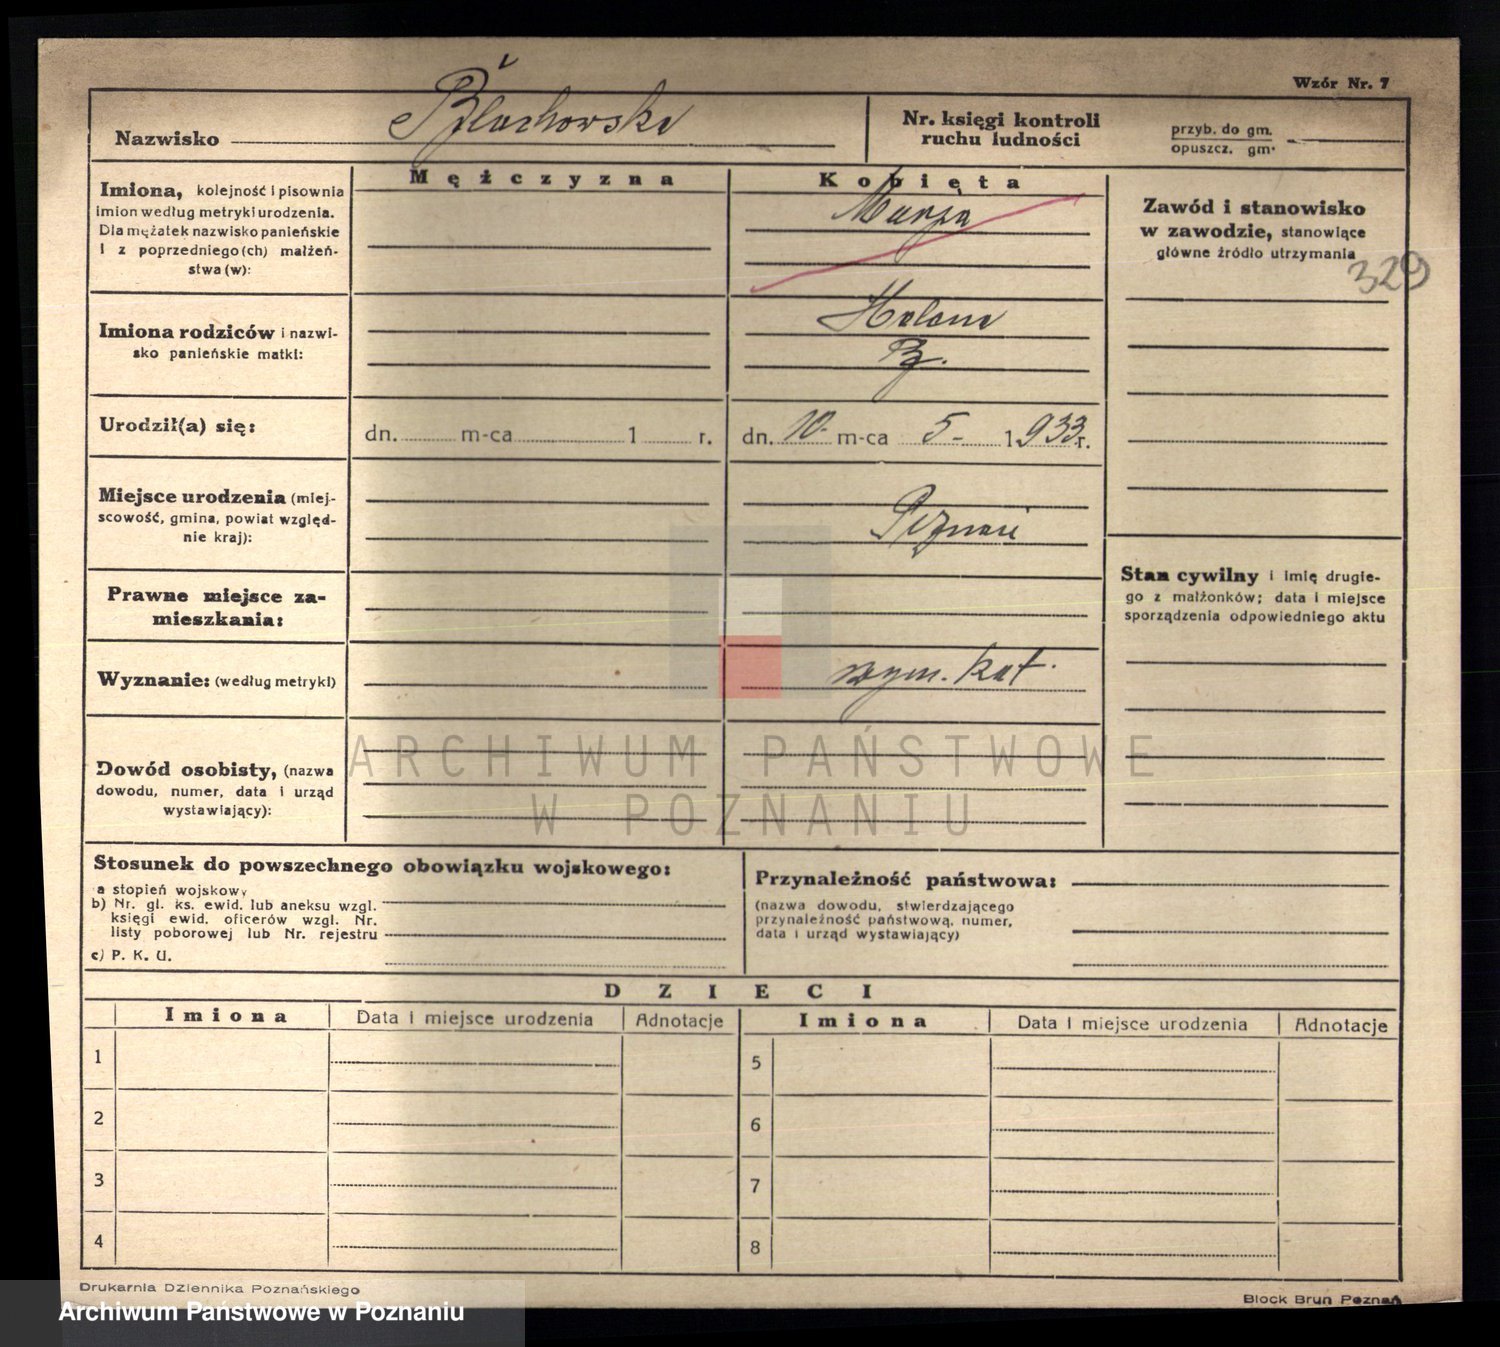 Wzór Nr. 7
Nazwisko
Nr. księgi kontroli
ruchu ludności
przyb. do gm.
opuszcz. gm.
Mężczyzna
Kobieta
Imiona, kolejność i pisownia
imion według metryki urodzenia.
Dla mężatek nazwisko panieńskie
i z poprzedniego (ch) małżeń-
stwa (w):
Zawód i stanowisko
w zawodzie, stanowiące
główne źródło utrzymania
329
Imiona rodziców i nazwi-
sko panieńskie matki:
Urodził(a) się:
dn. m-ca 1 r.
dn. 10. m-ca 5- 1933 r.
Miejsce urodzenia (miej-
scowość, gmina, powiat względ-
nie kraj):
Poznań
Prawne miejsce za-
mieszkania:
Stan cywilny i imię drugie-
go z małżonków; data i miejsce
sporządzenia odpowiedniego aktu
Wyznanie: (według metryki)
rzym. kat.
Dowód osobisty, (nazwa
dowodu, numer, data i urząd
wystawiający):
ARCHIWUM PAŃSTWOWE
W POZNANIU
Stosunek do powszechnego obowiązku wojskowego:
a stopień wojskowy
b) Nr. gł. ks. ewid. lub aneksu wzgl.
księgi ewid. oficerów wzgl. Nr.
listy poborowej lub Nr. rejestru
c) P. K. U.
Przynależność państwowa:
(nazwa dowodu, stwierdzającego
przynależność państwową, numer,
data i urząd wystawiający)
DZIECI
Imiona Data i miejsce urodzenia Adnotacje Imiona Data i miejsce urodzenia Adnotacje
1 5
2 6
3 7
4 8
Drukarnia Dziennika Poznańskiego
Block Brun Poznań
Archiwum Państwowe w Poznaniu